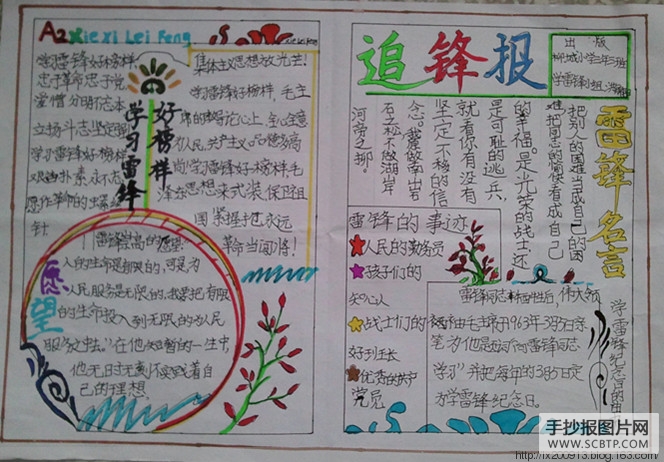 A2 xie xi Lei Feng
xie xi Lei Feng
学习雷锋好榜样
忠于革命忠于党
爱憎分明不忘本
立场斗志坚定强
学习雷锋好榜样
艰苦朴素永不忘
愿作革命的
钉
学习雷锋
好榜样
集体主义思想放光芒!
学习雷锋好榜样,毛主
席的教导记心上,全心全意
为人民共产主义品德多高
尚!学习雷锋好榜样,毛
泽东思想来武装,保卫祖
国紧握手枪永远
革命当闯将!
愿望
雷锋崇高的愿望
人的生命是有限的,可是为
人民服务是无限的,我要把有限
的生命投入到无限的为人民
服务之中去。"在他短暂的一生中
他无时无刻不实践着自
己的理想.
追锋报
出版
柳城小学三年三班
学雷锋小组
雷锋名言
把别人的困难当成自己的困
难,把同志的愉快看成自己
的幸福。是光荣的战士还
是可耻的逃兵,
就看你有没有
坚定不移的信
念。我愿做高山岩
石之松,不做湖岸
河旁之柳。
雷锋的事迹
人民的勤务员
孩子们的
知心人
战士们的
好班长
优秀的共产
党员
学雷锋纪念日的由
雷锋同志牺牲后,伟大领
袖毛主席于1963年3月5日亲
笔为他题词"向雷锋同志
学习"并把每年的3月5日定
为学雷锋纪念日。
手抄报图片网
WWW.SCBTP.COM
http://lx200913.blog.163.com/